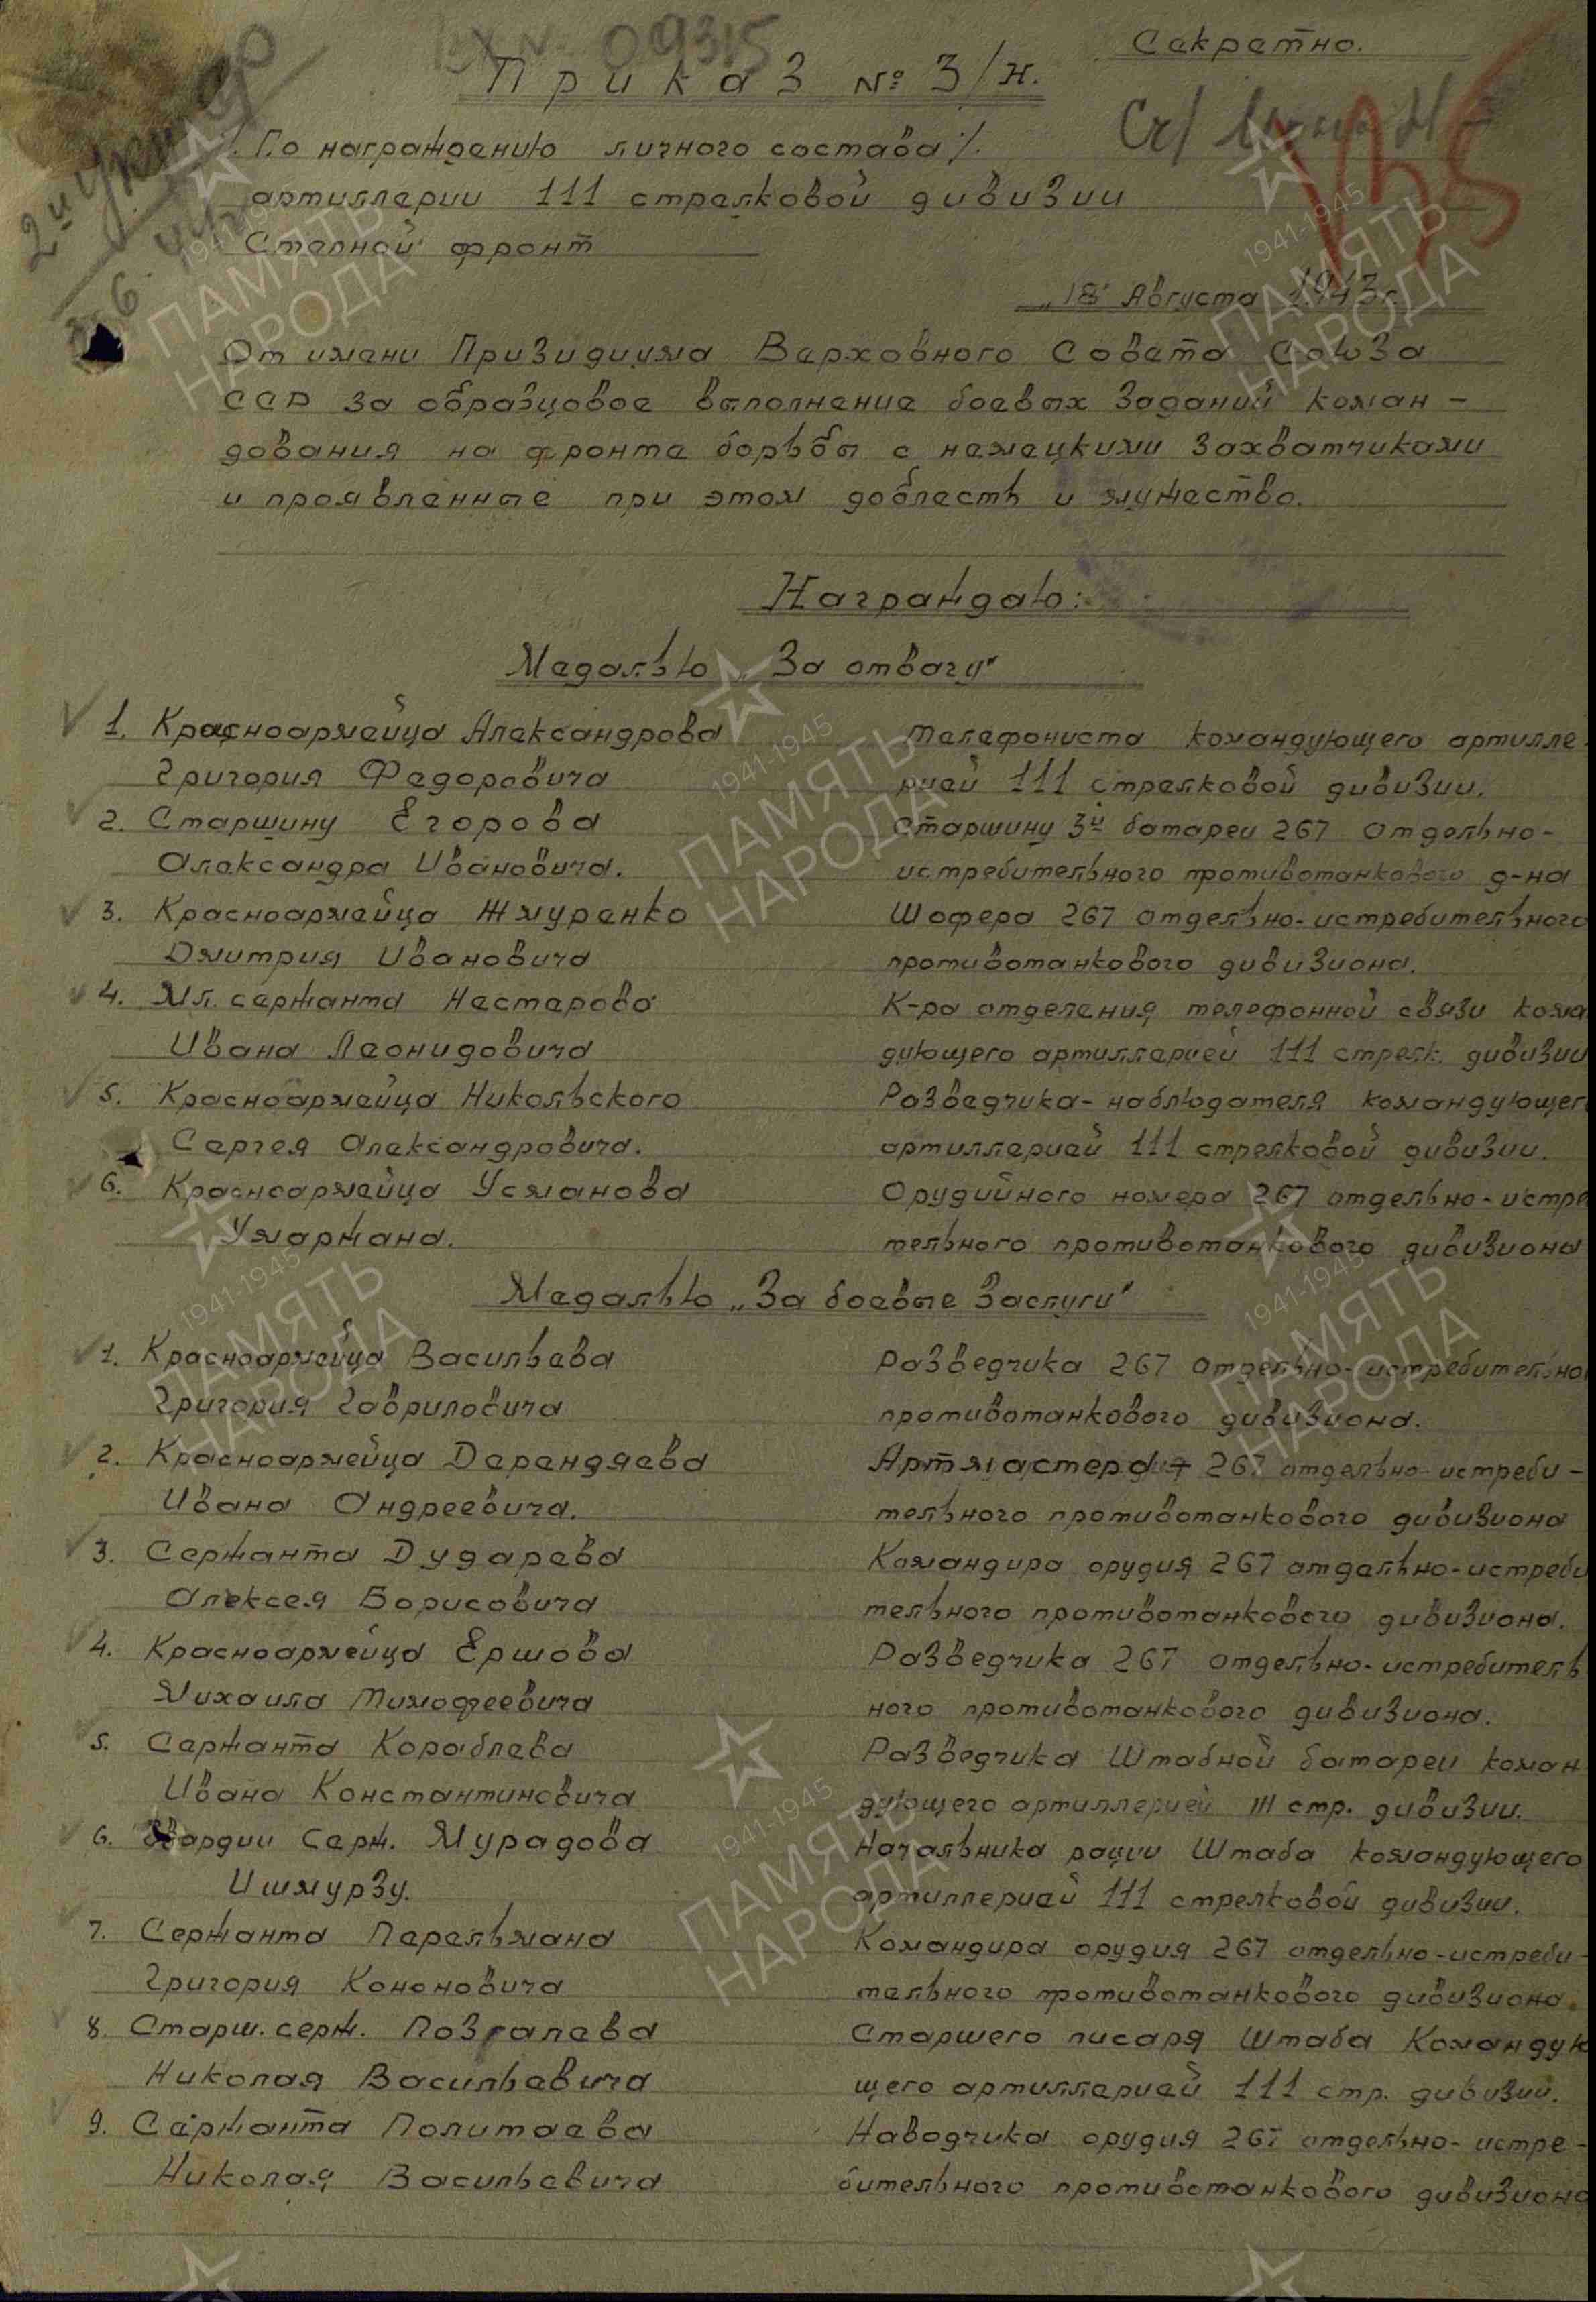 09315
Секретно.
Приказ № 3/н.
./. По награждению личного состава ./.
артиллерии 111 стрелковой дивизии
Степной фронт
„18" Августа 1943 г.
От имени Призидиума Верховного Совета Союза
ССР за образцовое выполнение боевых заданий коман-
дования на фронте борьбы с немецкими захватчиками
и проявленные при этом доблесть и мужество.
Награждаю:
Медалью „За отвагу"
1. Красноармейца Александрова телефониста командующего артилле-
Григория Федоровича рией 111 стрелковой дивизии.
2. Старшину Егорова старшину 3й батареи 267 отдельно-
Александра Ивановича. истребительного противотанкового д-на
3. Красноармейца Жмуренко Шофера 267 отдельно-истребительного
Дмитрия Ивановича противотанкового дивизиона.
4. Мл. сержанта Нестерова К-ра отделения телефонной связи кома
Ивана Леонидовича дующего артиллерией 111 стрелк. дивизии
5. Красноармейца Никольского Разведчика-наблюдателя командующег
Сергея Александровича. артиллерией 111 стрелковой дивизии.
6. Красноармейца Усманова Орудийного номера 267 отдельно-истре
Умаржана. тельного противотанкового дивизиона
Медалью „За боевые заслуги"
1. Красноармейца Васильева Разведчика 267 отдельно-истребительно
Григория Гавриловича противотанкового дивизиона.
2. Красноармейца Дерендяева Артмастера 267 отдельно-истреби-
Ивана Андреевича. тельного противотанкового дивизиона
3. Сержанта Дударева Командира орудия 267 отдельно-истреби
Алексея Борисовича тельного противотанкового дивизиона.
4. Красноармейца Ершова Разведчика 267 отдельно-истребитель
Михаила Тимофеевича ного противотанкового дивизиона.
5. Сержанта Кораблева Разведчика Штабной батареи коман
Ивана Константиновича дующего артиллерией 111 стр. дивизии.
6. Гвардии Серж. Мурадова Начальника рации Штаба командующего
Ишмурзу. артиллерией 111 стрелковой дивизии.
7. Сержанта Перельмана Командира орудия 267 отдельно-истреби-
Григория Кононовича тельного противотанкового дивизиона.
8. Старш. серж. Позгалева Старшего писаря Штаба Командую
Николая Васильевича щего артиллерией 111 стр. дивизии.
9. Сержанта Политаева Наводчика орудия 267 отдельно-истре-
Николая Васильевича бительного противотанкового дивизиона
1941-1945
ПАМЯТЬ
НАРОДА